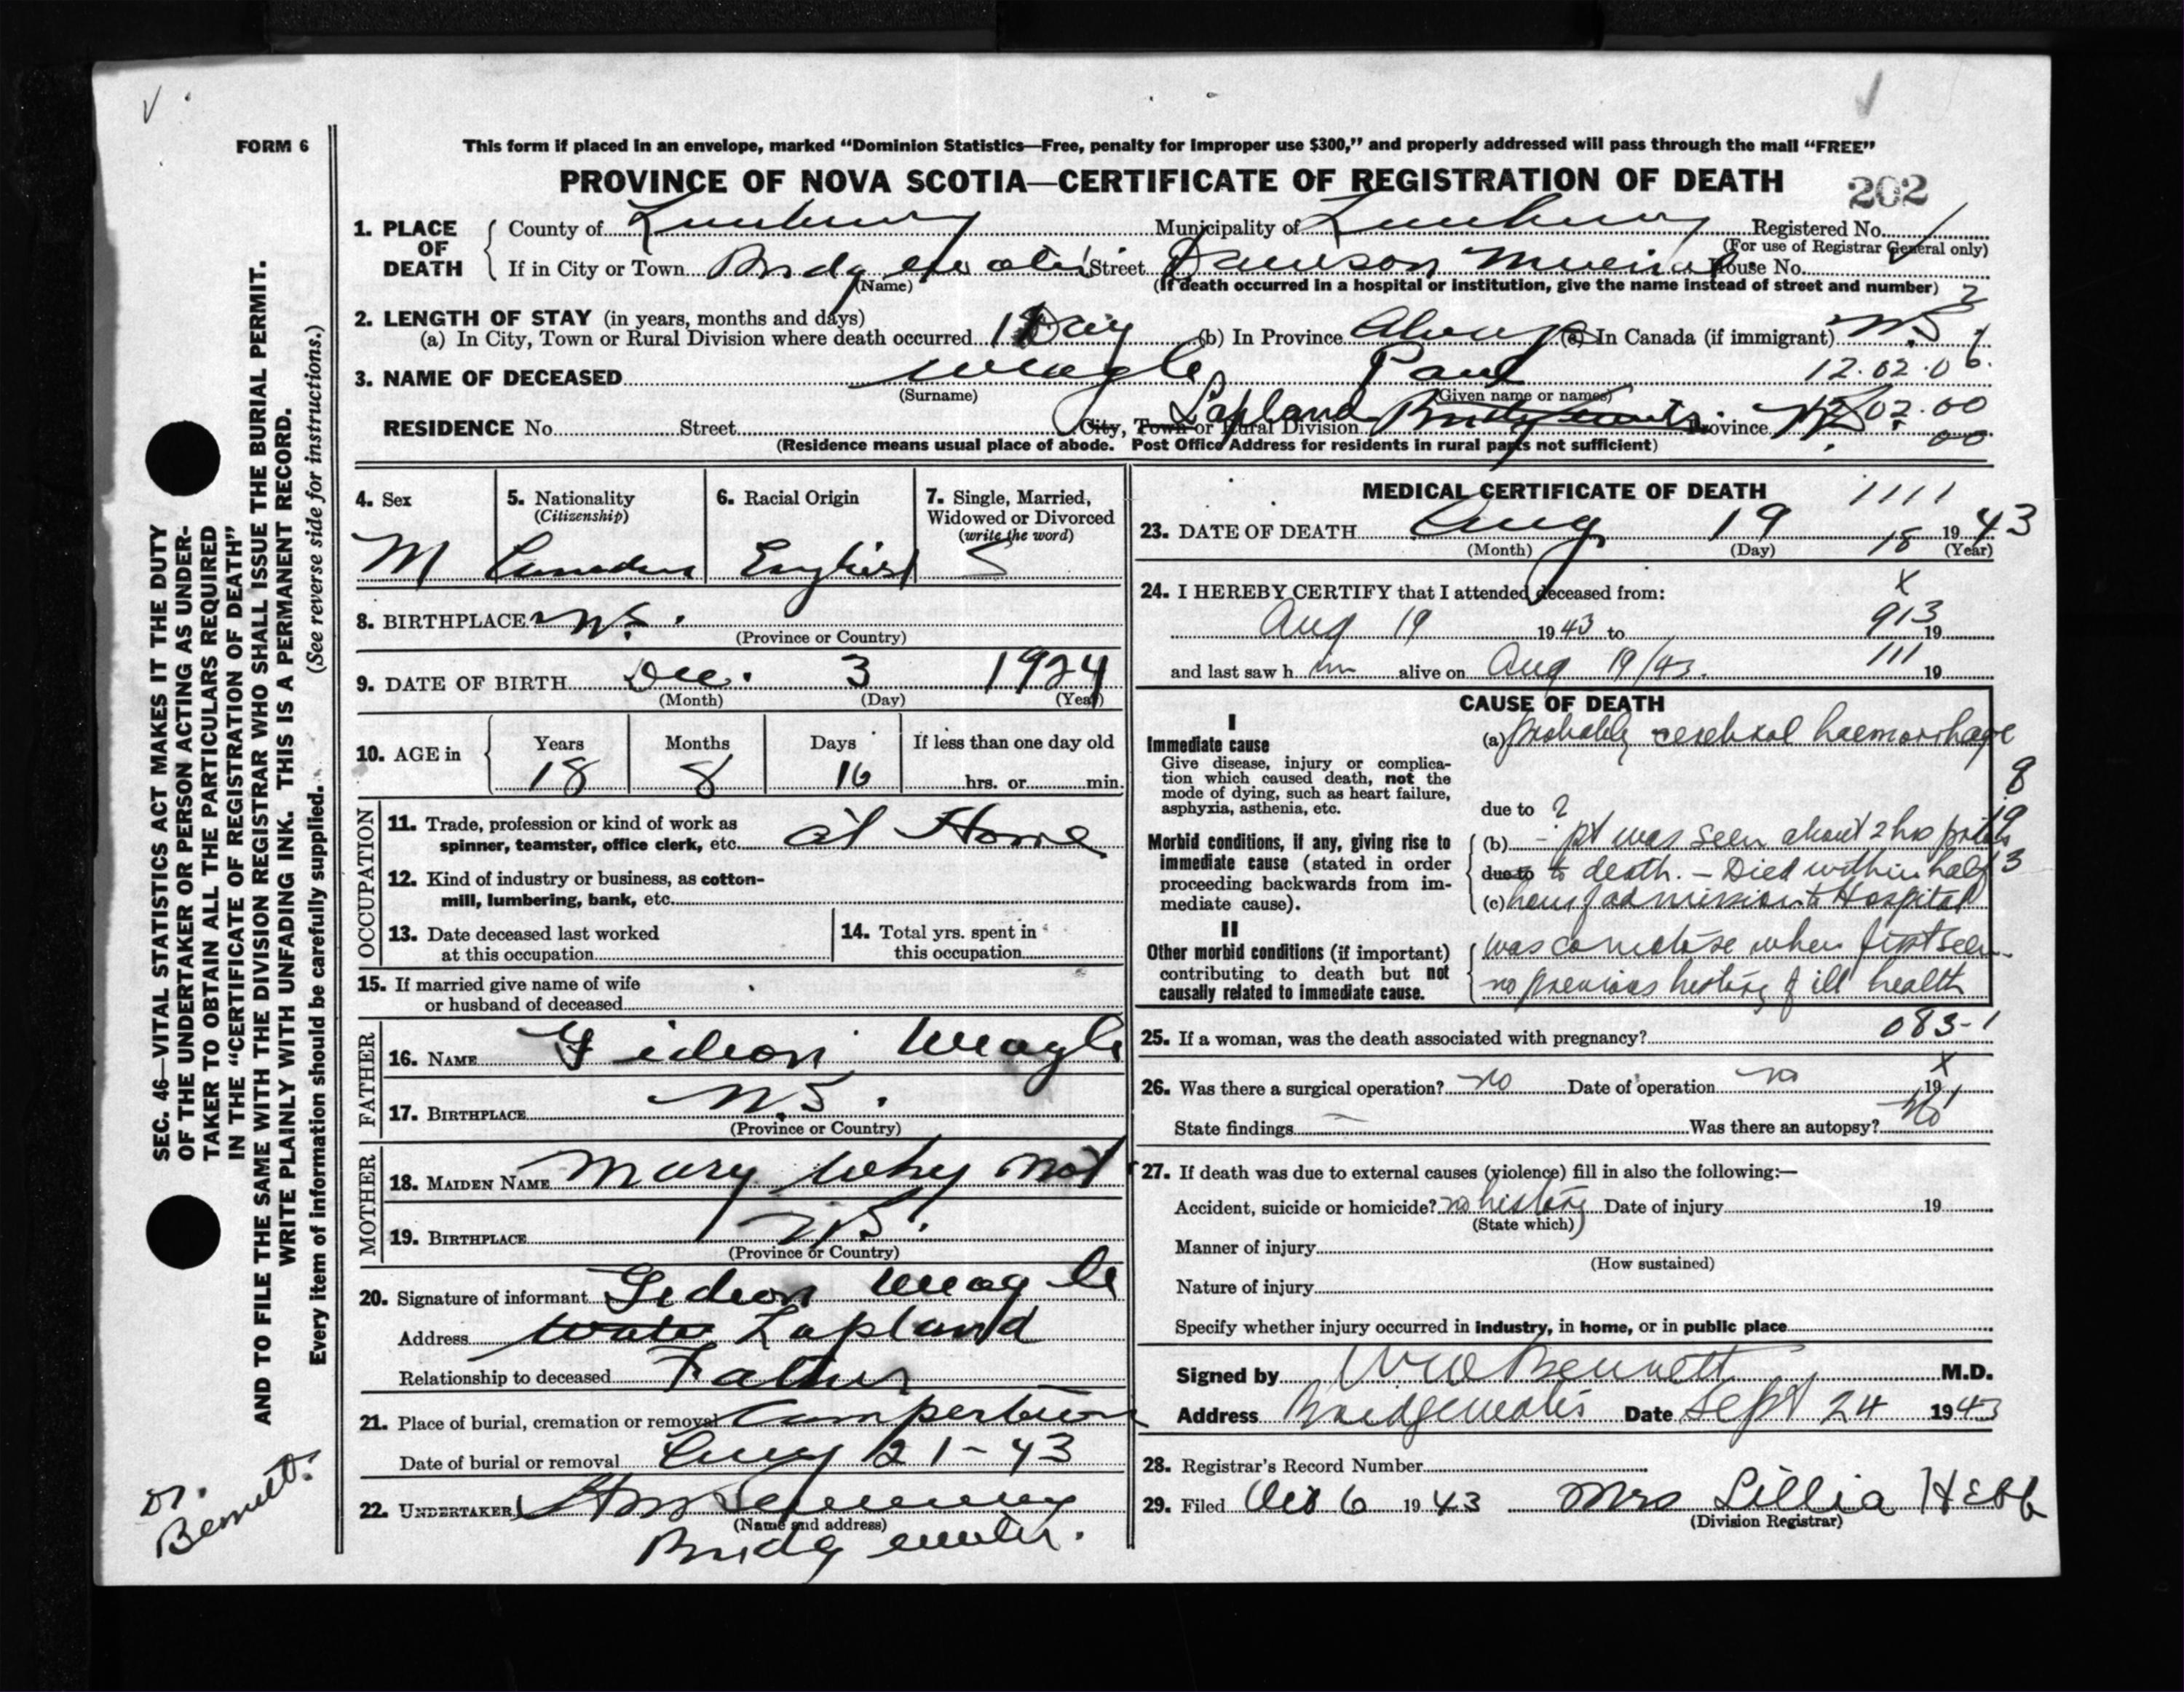 FORM 6
This form if placed in an envelope, marked “Dominion Statistics—Free, penalty for improper use $300,” and properly addressed will pass through the mail “FREE”
PROVINCE OF NOVA SCOTIA—CERTIFICATE OF REGISTRATION OF DEATH 202
1. PLACE OF DEATH
County of Lunenburg Municipality of Lunenburg Registered No.
(For use of Registrar General only)
If in City or Town Bridgewater Street Dawson Memorial House No.
(Name) (If death occurred in a hospital or institution, give the name instead of street and number)
2. LENGTH OF STAY (in years, months and days)
(a) In City, Town or Rural Division where death occurred 1 Day (b) In Province Always (c) In Canada (if immigrant) N.S
3. NAME OF DECEASED Weagle Paul 12.02.06.
(Surname) (Given name or names)
RESIDENCE No. Street City, Town or Rural Division Lapland Bridgewater Province N.S. 12.02.00
00
(Residence means usual place of abode. Post Office Address for residents in rural parts not sufficient)
4. Sex
M
5. Nationality
(Citizenship)
Canadian
6. Racial Origin
English
7. Single, Married, Widowed or Divorced
(write the word)
S
8. BIRTHPLACE N.S.
(Province or Country)
9. DATE OF BIRTH Dec. 3 1924
(Month) (Day) (Year)
10. AGE in
Years Months Days If less than one day old
18 8 16 hrs. or min.
OCCUPATION
11. Trade, profession or kind of work as
spinner, teamster, office clerk, etc. at Home
12. Kind of industry or business, as cotton-
mill, lumbering, bank, etc.
13. Date deceased last worked
at this occupation
14. Total yrs. spent in
this occupation
15. If married give name of wife
or husband of deceased
FATHER
16. NAME Gideon Weagle
17. BIRTHPLACE N.S.
(Province or Country)
MOTHER
18. MAIDEN NAME Mary Why not
19. BIRTHPLACE N.S.
(Province or Country)
20. Signature of informant Gideon Weagle
Address Lapland
Relationship to deceased Father
21. Place of burial, cremation or removal Camperdown
Date of burial or removal Aug 21-43
22. UNDERTAKER
(Name and address)
Bridgewater.
MEDICAL CERTIFICATE OF DEATH 1111
23. DATE OF DEATH Aug 19 1943
(Month) (Day) 18 (Year)
24. I HEREBY CERTIFY that I attended deceased from: X
Aug 19 1943 to 913 19
and last saw h im alive on Aug 19/43. 111 19
CAUSE OF DEATH
I
Immediate cause
Give disease, injury or complica-
tion which caused death, not the
mode of dying, such as heart failure,
asphyxia, asthenia, etc.
(a) Probably cerebral haemorrhage
8
due to ?
19
Morbid conditions, if any, giving rise to
immediate cause (stated in order
proceeding backwards from im-
mediate cause).
(b) - pt was seen about 2 hrs prior
due to to death. - Died within half 3
(c) hour of admission to Hospital
II
Other morbid conditions (if important)
contributing to death but not
causally related to immediate cause.
was comatose when first seen.
no previous history of ill health
083-1
25. If a woman, was the death associated with pregnancy?
X
26. Was there a surgical operation? no Date of operation no 19
State findings — Was there an autopsy? No
27. If death was due to external causes (violence) fill in also the following:—
Accident, suicide or homicide? no history Date of injury 19
(State which)
Manner of injury
(How sustained)
Nature of injury
Specify whether injury occurred in industry, in home, or in public place
Signed by W W Bennett M.D.
Address Bridgewater Date Sept 24 1943
28. Registrar's Record Number
29. Filed Oct 6 1943 Mrs Lillia Hebb
(Division Registrar)
SEC. 46—VITAL STATISTICS ACT MAKES IT THE DUTY
OF THE UNDERTAKER OR PERSON ACTING AS UNDER-
TAKER TO OBTAIN ALL THE PARTICULARS REQUIRED
IN THE “CERTIFICATE OF REGISTRATION OF DEATH”
AND TO FILE THE SAME WITH THE DIVISION REGISTRAR WHO SHALL ISSUE THE BURIAL PERMIT.
WRITE PLAINLY WITH UNFADING INK. THIS IS A PERMANENT RECORD.
Every item of information should be carefully supplied. (See reverse side for instructions.)
Dr.
Bennett.